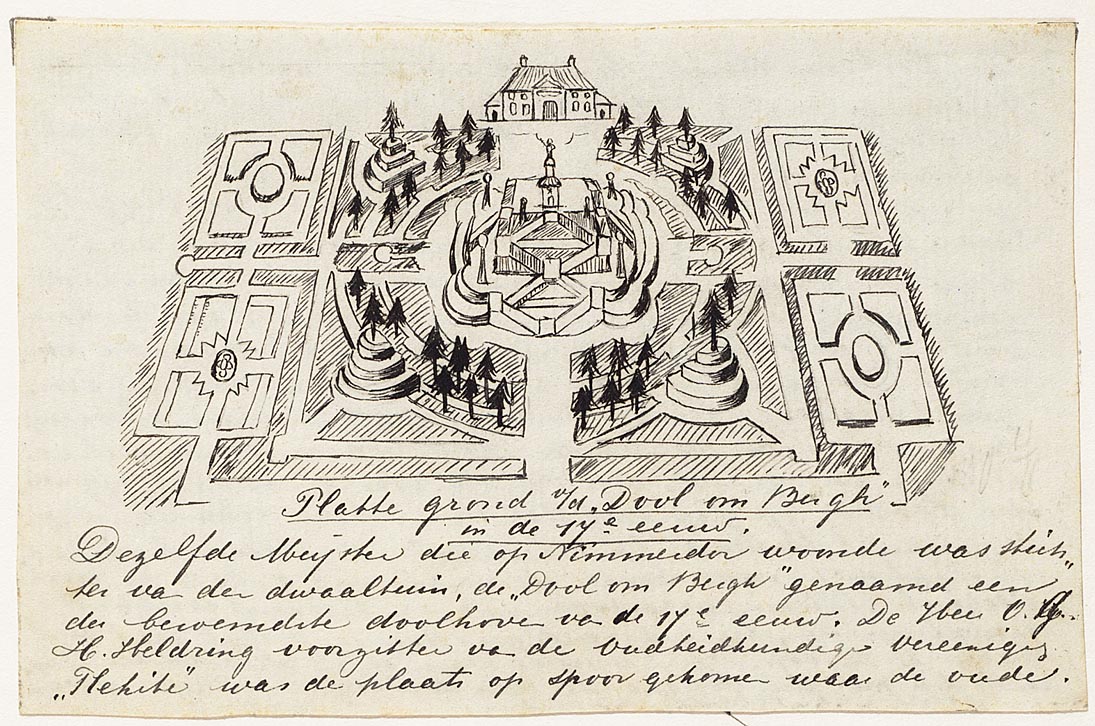 Platte grond v/d „Dool om Bergh”
in de 17e eeuw.
Dezelfde Meijster die op Nimmerdor woonde was stich„
ter va den dwaaltuin, de „Dool om Bergh” genaamd een
der beroemdste doolhoven va de 17e eeuw. De Heer O. G.
H. Heldring voorzitter va de oudheidkundige vereeniging
„Flehite” was de plaats op spoor gekomen waar de oude.